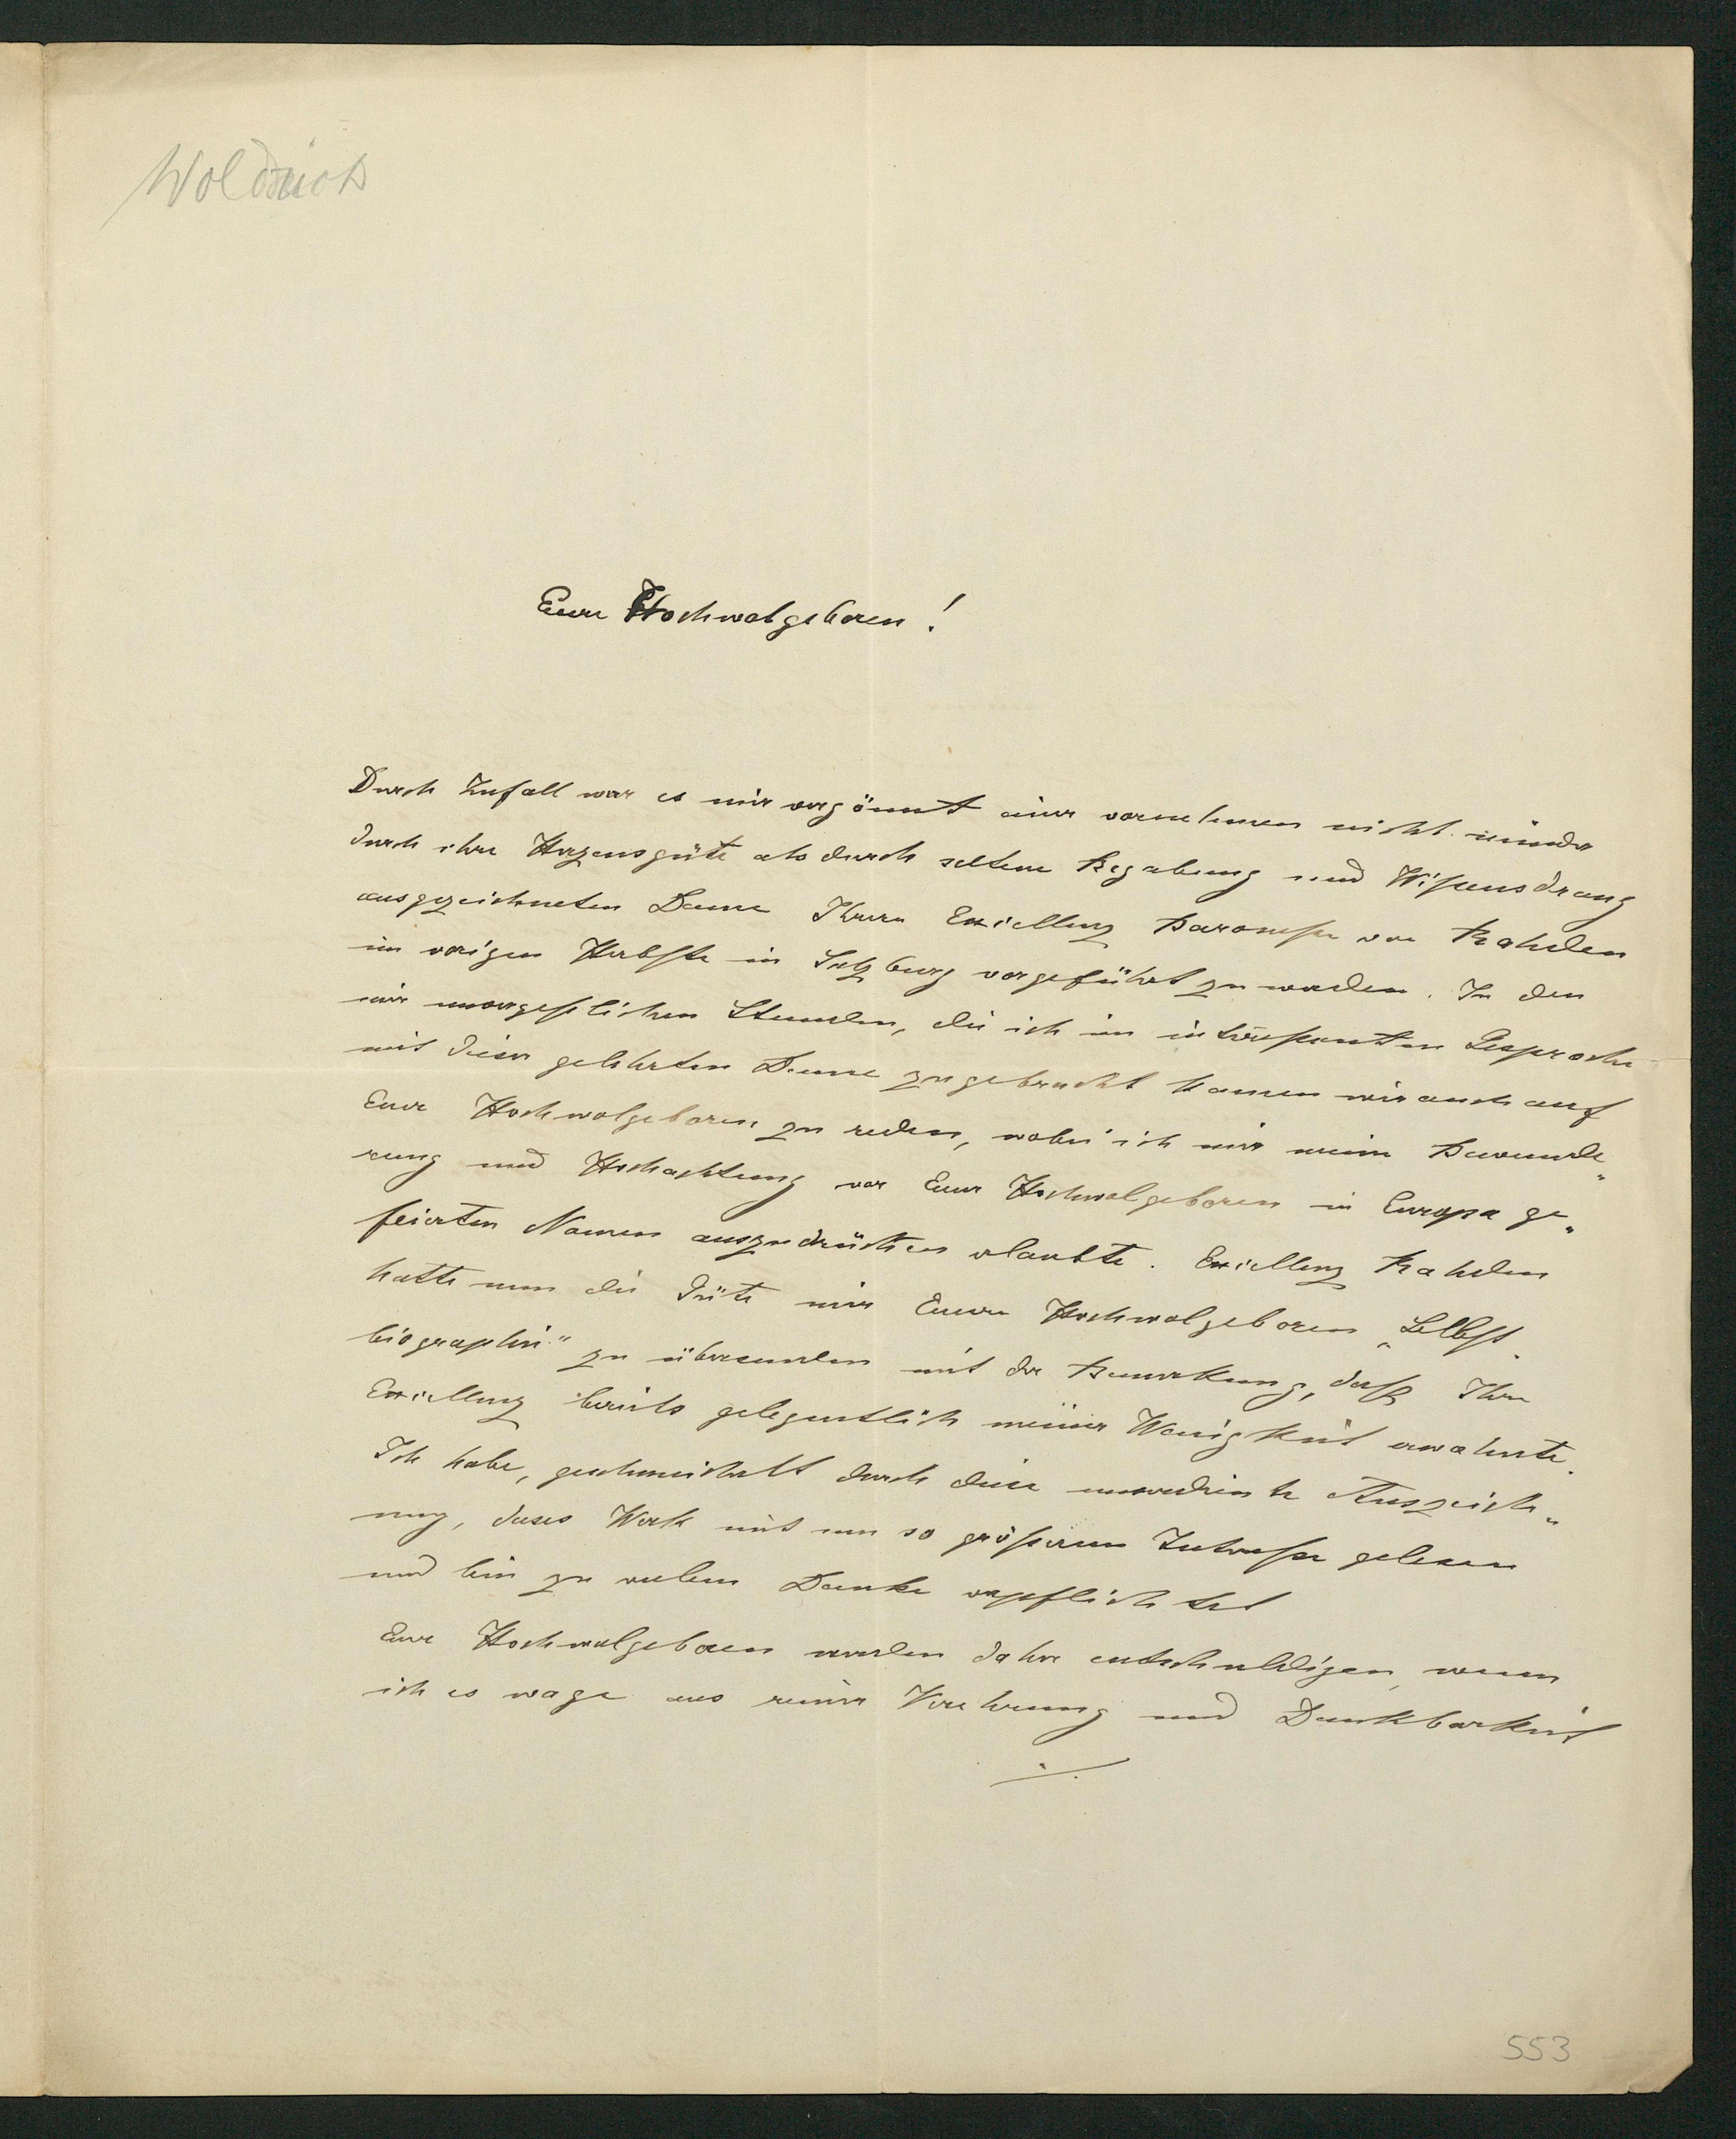 Woldřich
Euer Hochwolgeboren!
Durch Zufall war es mir vergönnt einer vornehmen nicht minder
durch ihre Herzensgüte als durch seltene Begabung und Wißensdrang
ausgezeichneten Dame Ihrer Excellenz Baronesse von Rahden
im vorigen Herbste in Salzburg vorgeführt zu werden. In den
mir unvergeßlichen Stunden, die ich im interessanten Gespräche
mit dieser gelehrten Dame zugebracht kamen wir auch auf
Euer Hochwolgeboren zu reden, wobei ich mir meine Bewunde„
rung und Hochachtung vor Euer Hochwolgeboren in Europa ge„
feierten Namen auszudrücken erlaubte. Excellenz Rahden
hatte nun die Güte mir Euerer Hochwolgeboren „Selbst„
biographie" zu übersenden mit der Bemerkung, daß Ihre
Excellenz bereits gelegentlich meiner Wenigkeit erwähnte.
Ich habe, geschmeichelt durch diese unverdiente Auszeich„
nung, dieses Werk mit um so größerem Interesse gelesen
und bin zu vielem Danke verpflichtet
Euer Hochwolgeboren werden daher entschuldigen, wenn
ich es wage aus reiner Verehrung und Dankbarkeit
./.
553